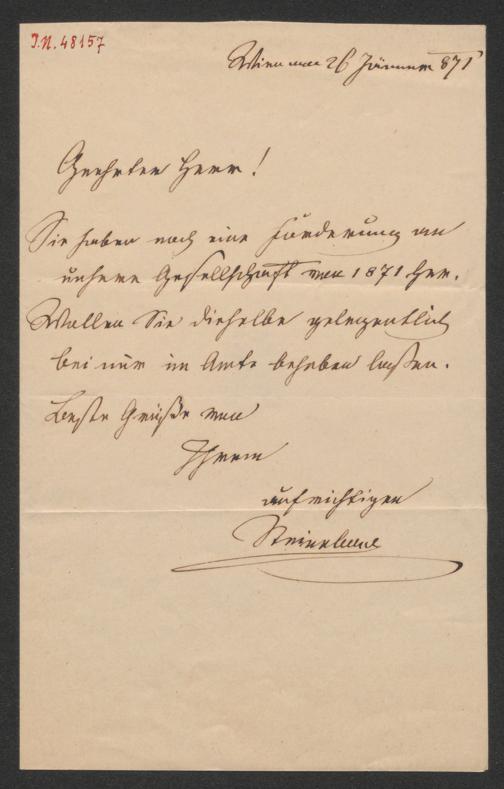 I.N. 48157
Wien am 26 Jänner 871
Geehrter Herr!
Sie haben noch eine Forderung an
unsere Gesellschaft von 1871 her.
Wollen Sie dieselbe gelegentlich
bei mir im Amte beheben lassen.
Beste Grüße von
Ihrem
aufrichtigen